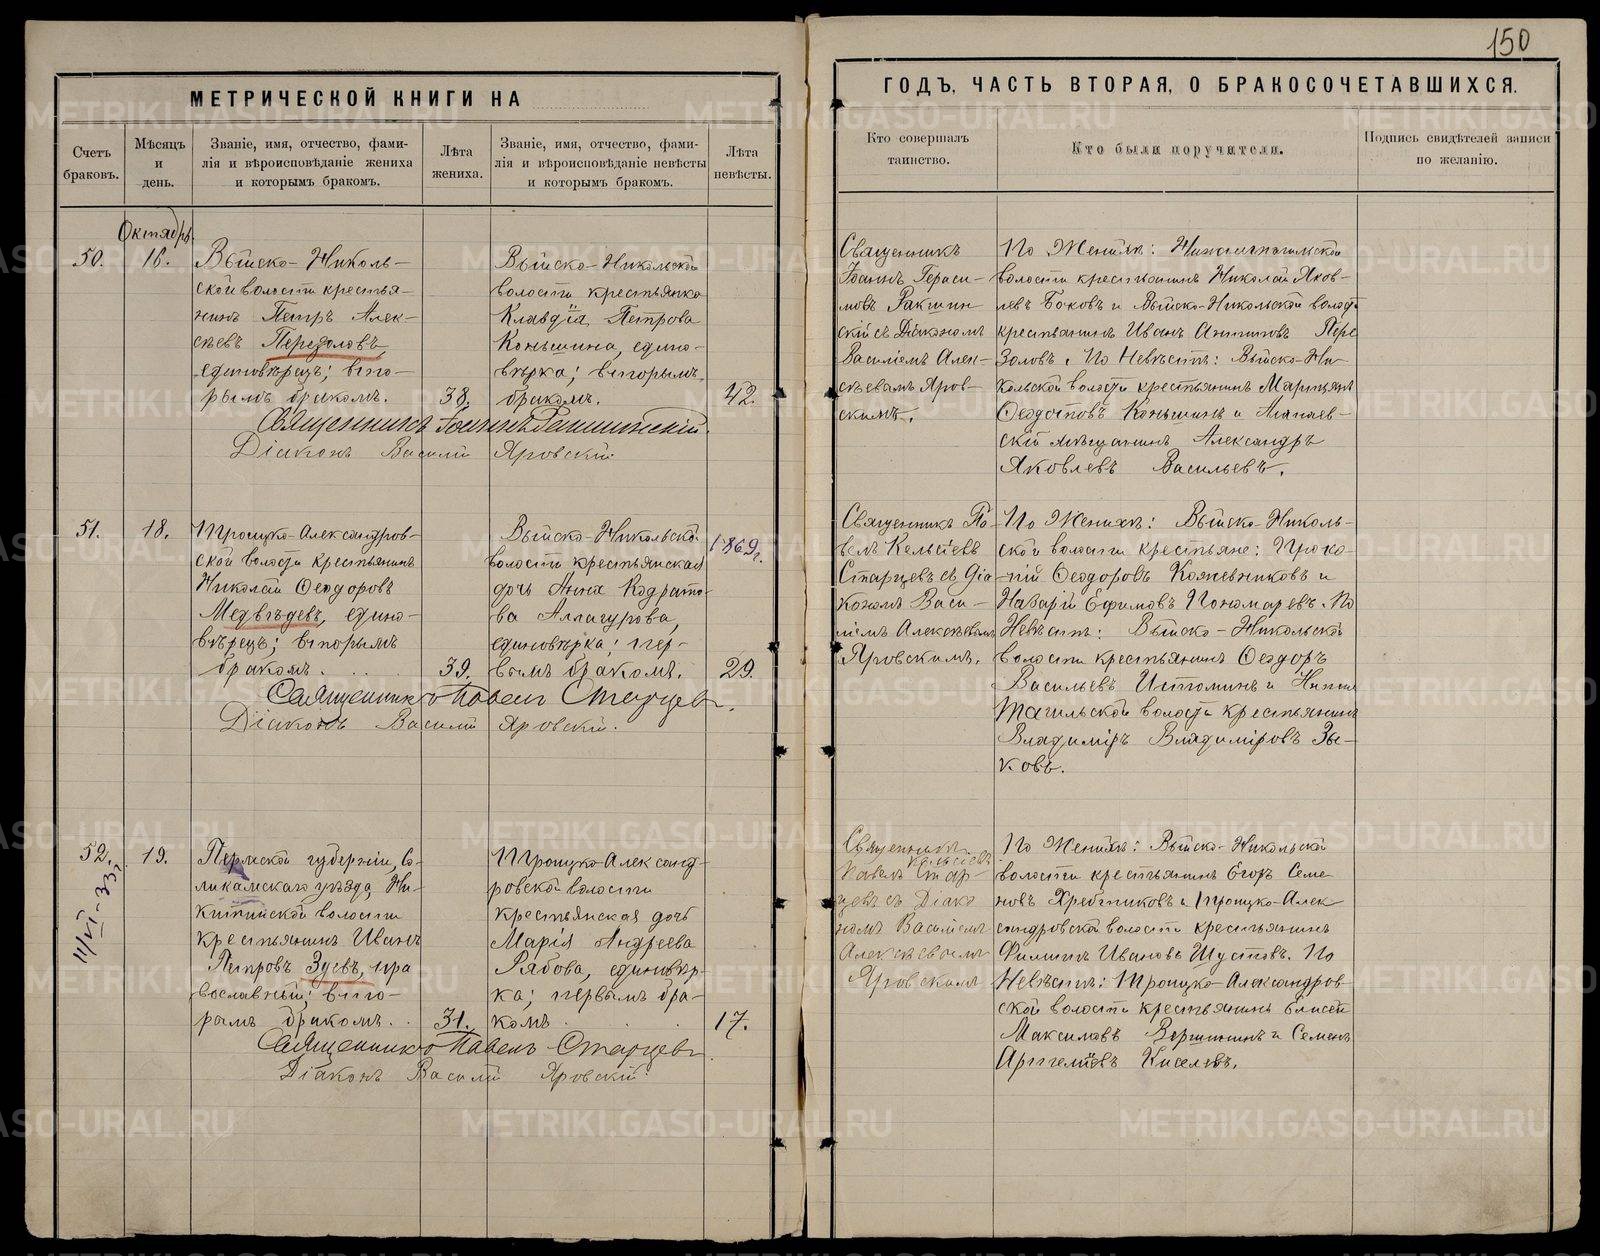 150
МЕТРИЧЕСКОЙ КНИГИ НА
ГОДЪ, ЧАСТЬ ВТОРАЯ, О БРАКОСОЧЕТАВШИХСЯ.
Счетъ
браковъ.
Мѣсяцъ
и
день.
Званіе, имя, отчество, фами-
лія и вѣроисповѣданіе жениха
и которымъ бракомъ.
Лѣта
жениха.
Званіе, имя, отчество, фами-
лія и вѣроисповѣданіе невѣсты
и которымъ бракомъ.
Лѣта
невѣсты.
Кто совершалъ
таинство.
Кто были поручители.
Подпись свидѣтелей записи
по желанію.
Октябрь
50.
16.
Выйско-Николь-
ской волости крестья-
нинъ Петръ Алек-
сѣевъ Перезоловъ,
единовѣрецъ; вто-
рымъ бракомъ.
38.
Выйско-Никольской
волости крестьянка
Клавдія Петрова
Коньшина, едино-
вѣрка; вторымъ
бракомъ.
42.
Священникъ Іоаннъ
Діаконъ Василій Яровскій.
Священникъ
Іоаннъ Гераси-
мовъ
скій съ Діакономъ
Василіемъ Алек-
сѣевымъ Яров-
скимъ.
По Женихѣ: Нижнетагильской
волости крестьянинъ Николай Яков-
левъ Боковъ и Выйско-Никольской волости
крестьянинъ Иванъ Антиповъ Пере
золовъ. По Невѣстѣ: Выйско-Ни-
кольской волости крестьянинъ
Ѳеодотовъ Коньшинъ и Алапаев-
скій мѣщанинъ Александръ
Яковлевъ Васильевъ.
51.
18.
Троицко-Александров-
ской волости крестьянинъ
Николай Ѳеодоровъ
Медвѣдевъ, едино-
вѣрецъ; вторымъ
бракомъ.
39.
Выйско-Никольской
волости крестьянская
дочь Анна Кодрато-
ва Аллагурова,
единовѣрка; пер-
вымъ бракомъ.
1869г.
29.
Священникъ Павелъ Старцевъ.
Діаконъ Василій Яровскій.
Священникъ Па-
велъ Кельсіевъ
Старцевъ съ Діа
кономъ Васи-
ліемъ Алексѣевымъ
Яровскимъ.
По Женихѣ: Выйско-Николь-
ской волости крестьяне: Проко-
пій Ѳеодоровъ Кожевниковъ и
Назарій Ефимовъ Пономаревъ. По
Невѣстѣ: Выйско-Никольской
волости крестьянинъ Ѳеодоръ
Васильевъ Истоминъ и Нижне
тагильской волости крестьянинъ
Владиміръ Владиміровъ Зы-
ковъ.
52.
11/VI-33г
19.
Пермской губерніи, Со-
ликамскаго уѣзда, Ни-
китинской волости
крестьянинъ Иванъ
Петровъ Зуевъ, пра
вославный; вто-
рымъ бракомъ.
31.
Троицко-Александ-
ровской волости
крестьянская дочь
Марія Андреева
Рябова, единовѣр-
ка; первымъ бра-
комъ
17.
Священникъ Павелъ Старцевъ
Діаконъ Василій Яровскій.
Священникъ
Кельсіевъ
Павелъ Стар-
цевъ съ Діако
номъ Василіемъ
Алексѣевымъ
Яровскимъ
По Женихѣ: Выйско-Никольской
волости крестьянинъ Егоръ Семе
новъ Хребтиковъ и Троицко-Алек
сандровской волости крестьянинъ
Филиппъ Ивановъ Шустовъ. По
Невѣстѣ: Троицко-Александров
ской волости крестьянинъ Елисей
Максимовъ Вершининъ и Семенъ
Артемовъ Киселевъ.